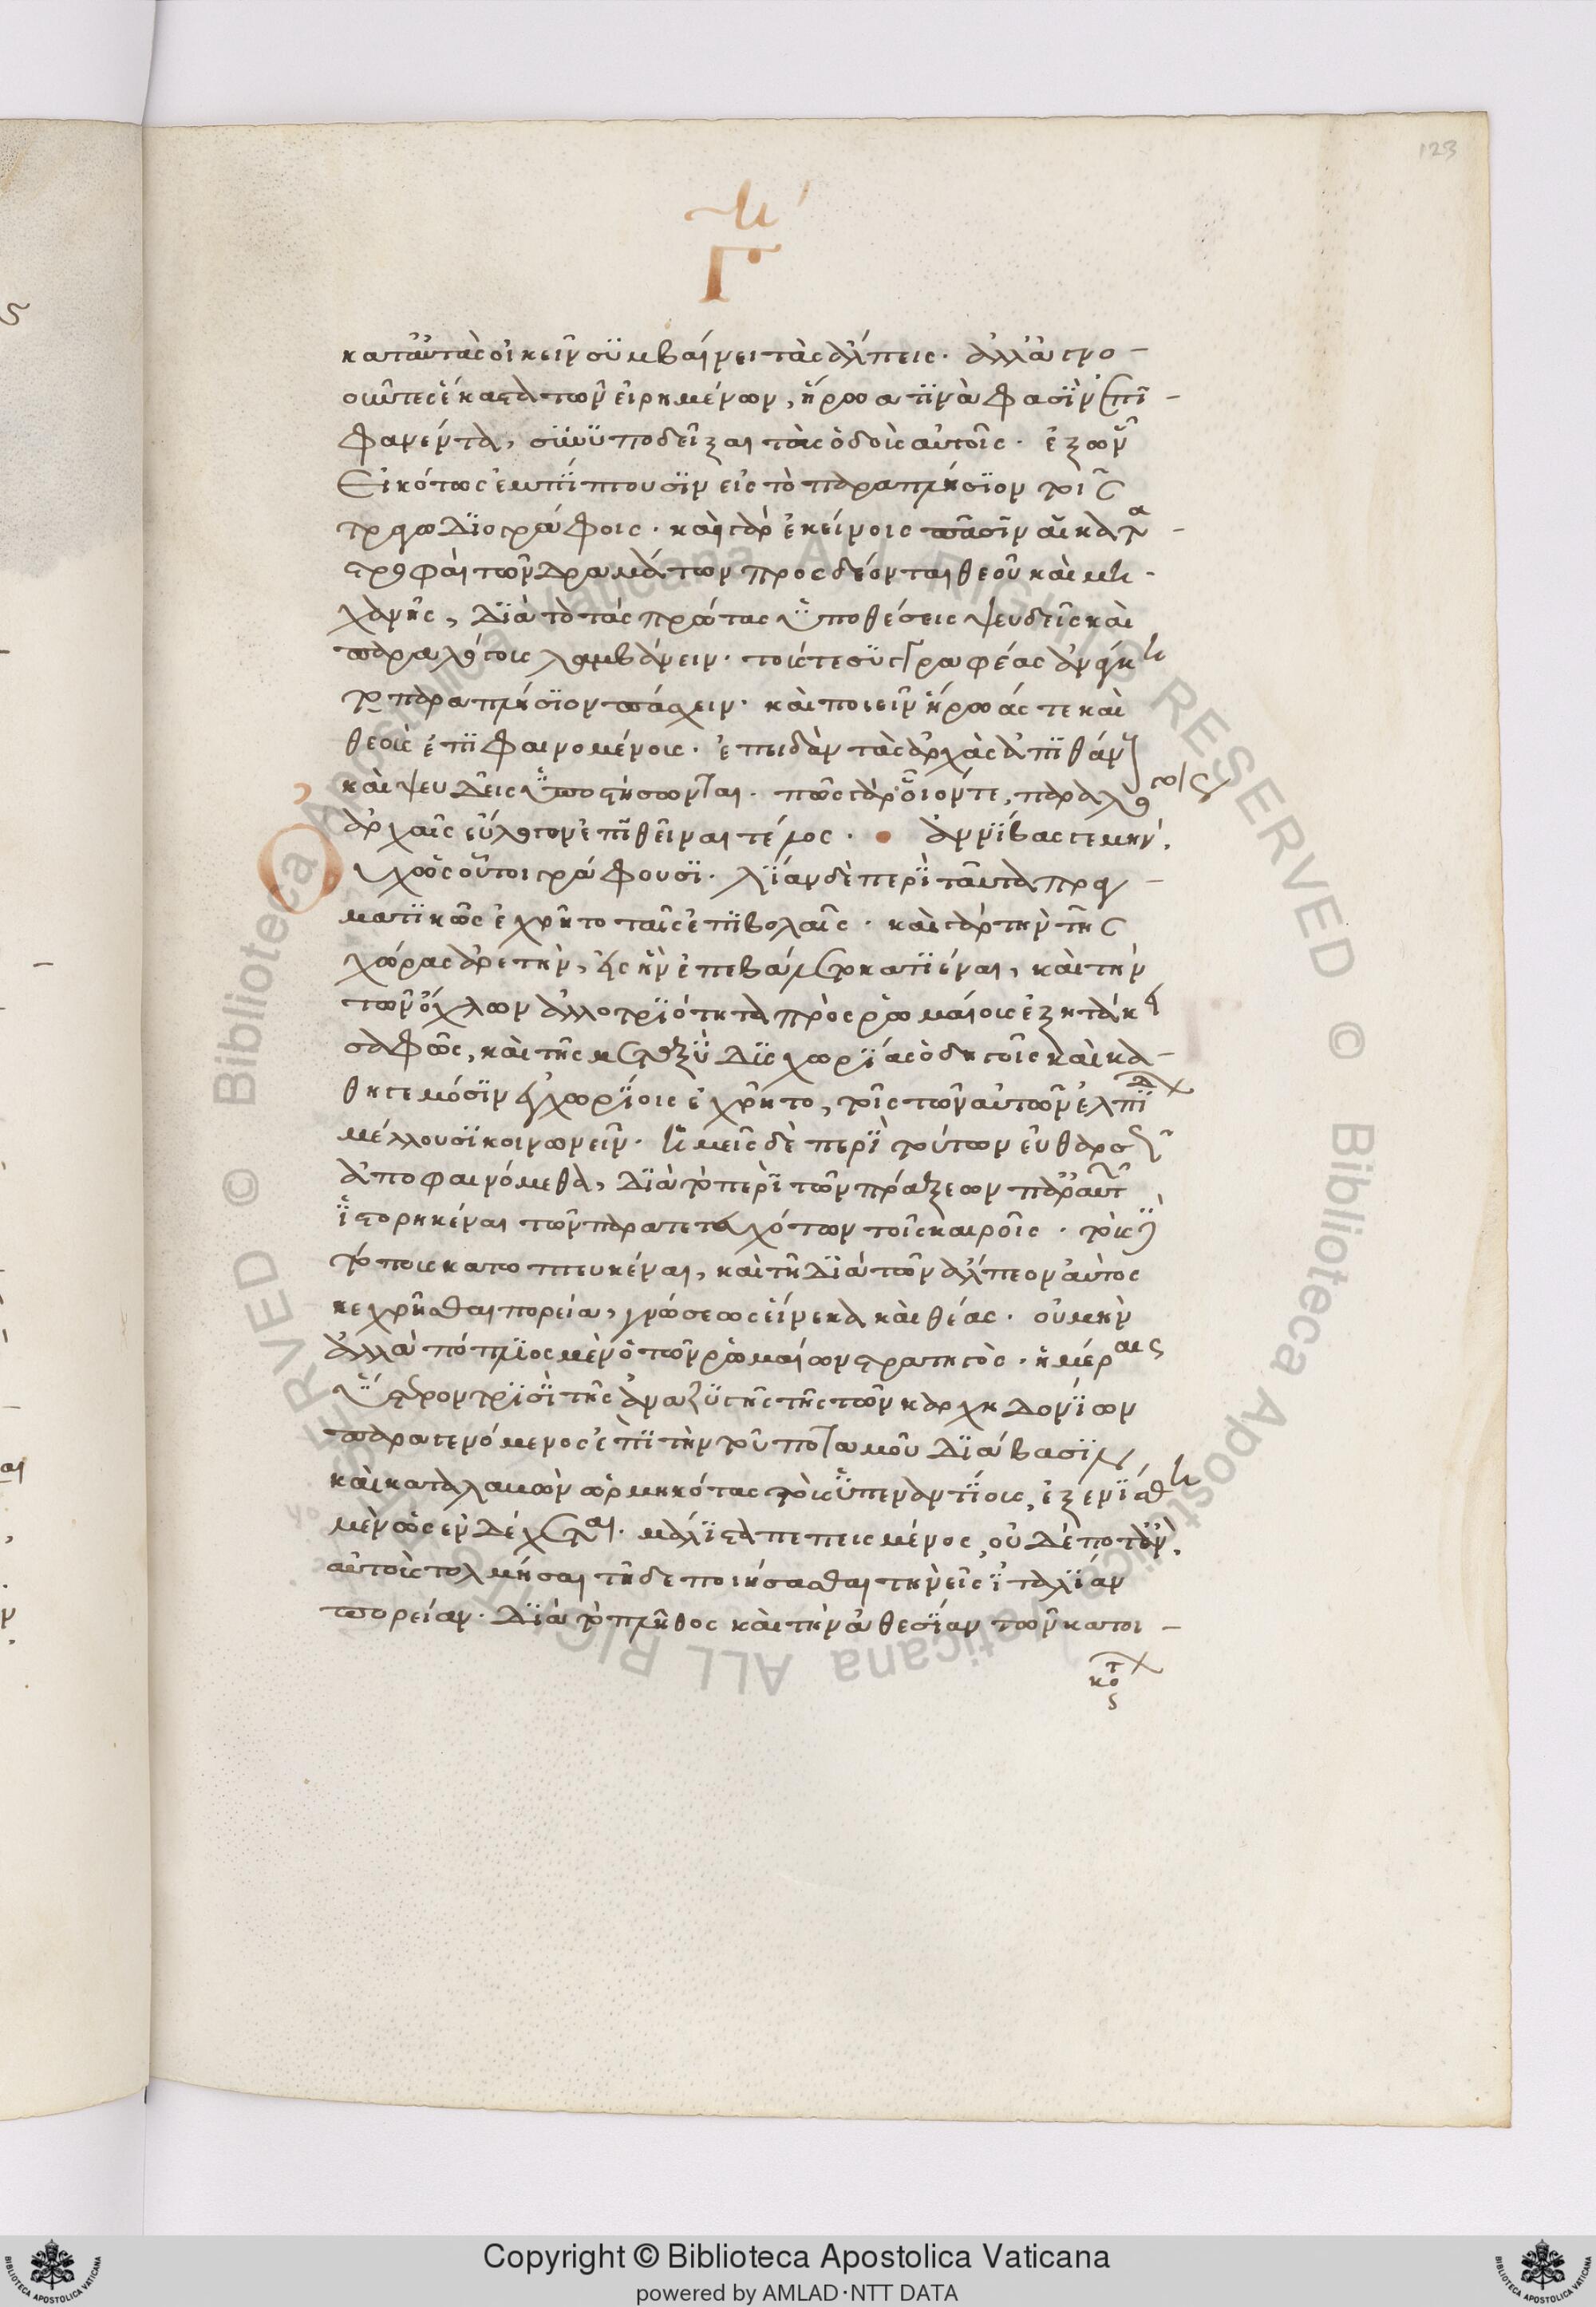 123
Γ
κατ' αὐτὰς οἰκεῖν συμβαίνει τὰς ἄλπεις. ἀλλ' ἀγνο-
οῦντες ἕκαστα τῶν εἰρημένων, ἥρωα τινὰ φασὶν ἐπι-
φανέντα, συνυποδεῖξαι τὰς ὁδοὺς αὐτοῖς. ἐξ ὧν
εἰκότως ἐμπίπτουσιν εἰς τὸ παραπλήσιον τοῖς
τραγωδιογράφοις. καὶ γὰρ ἐκείνοις πᾶσιν αἱ κατα-
στροφαὶ τῶν δραμάτων προσδέονται θεοῦ καὶ μη-
χανῆς, διὰ τὸ τὰς πρώτας ὑποθέσεις ψευδεῖς καὶ
παραλόγους λαμβάνειν. τούς τε συγγραφέας ἀνάγκη
τὸ παραπλήσιον πάσχειν. καὶ ποιεῖν ἥρωάς τε καὶ
θεοὺς ἐπιφαινομένους. ἐπειδὰν τὰς ἀρχὰς ἀπιθάνους
καὶ ψευδεῖς ὑποστήσωνται. πῶς γὰρ οἷόν τε, παραλόγοις
ἀρχαῖς εὔλογον ἐπιθεῖναι τέλος. ἀννίβας γε μὴν,
οὐχ ὡς οὗτοι γράφουσι. λίαν δὲ περὶ ταῦτα πραγ-
ματικῶς ἐχρῆτο ταῖς ἐπιβολαῖς. καὶ γὰρ τὴν τῆς
χώρας ἀρετὴν, εἰς ἣν ἐπεβάλετο κατιέναι, καὶ τὴν
τῶν ὄχλων ἀλλοτριότητα πρὸς ῥωμαίους ἐξητάκει
σαφῶς, καὶ τῆς μεταξὺ δυσχωρίας ὁδηγοῖς καὶ κα-
θηγεμόσιν ἐγχωρίοις ἐχρῆτο, τοῖς τῶν αὐτῶν ἐλπίδων
μέλλουσι κοινωνεῖν. ἡμεῖς δὲ περὶ τούτων εὐθαρσῶς
ἀποφαινόμεθα, διὰ τὸ περὶ τῶν πράξεων παρ' αὐτῶν
ἱστορηκέναι τῶν παρατετευχότων τοῖς καιροῖς. τοὺς δὲ
τόπους κατοπτευκέναι, καὶ τῆ διὰ τῶν ἄλπεων αὐτὸς
κεχρῆσθαι πορεία, γνώσεως εἵνεκα καὶ θέας. οὐ μὴν
ἀλλὰ πόπλιος μὲν ὁ τῶν ῥωμαίων στρατηγὸς. ἡμέραις
ὕστερον τρισὶ τῆς ἀναζυγῆς τῆς τῶν καρχηδονίων
παραγενόμενος ἐπὶ τὴν τοῦ ποταμοῦ διάβασιν,
καὶ καταλαβὼν ὡρμηκότας τοὺς ὑπεναντίους, ἐξενίσθη
μὲν ὡς ἐνδέχεται. μάλιστα πεπεισμένος, οὐδέποτ' ἂν,
αὐτοὺς τολμῆσαι τῆδε ποιήσασθαι τὴν εἰς ἰταλίαν
πορείαν. διὰ τὸ πλῆθος καὶ τὴν ἀθεσίαν τῶν κατοι-
κούντων
Copyright © Biblioteca Apostolica Vaticana
powered by AMLAD·NTT DATA